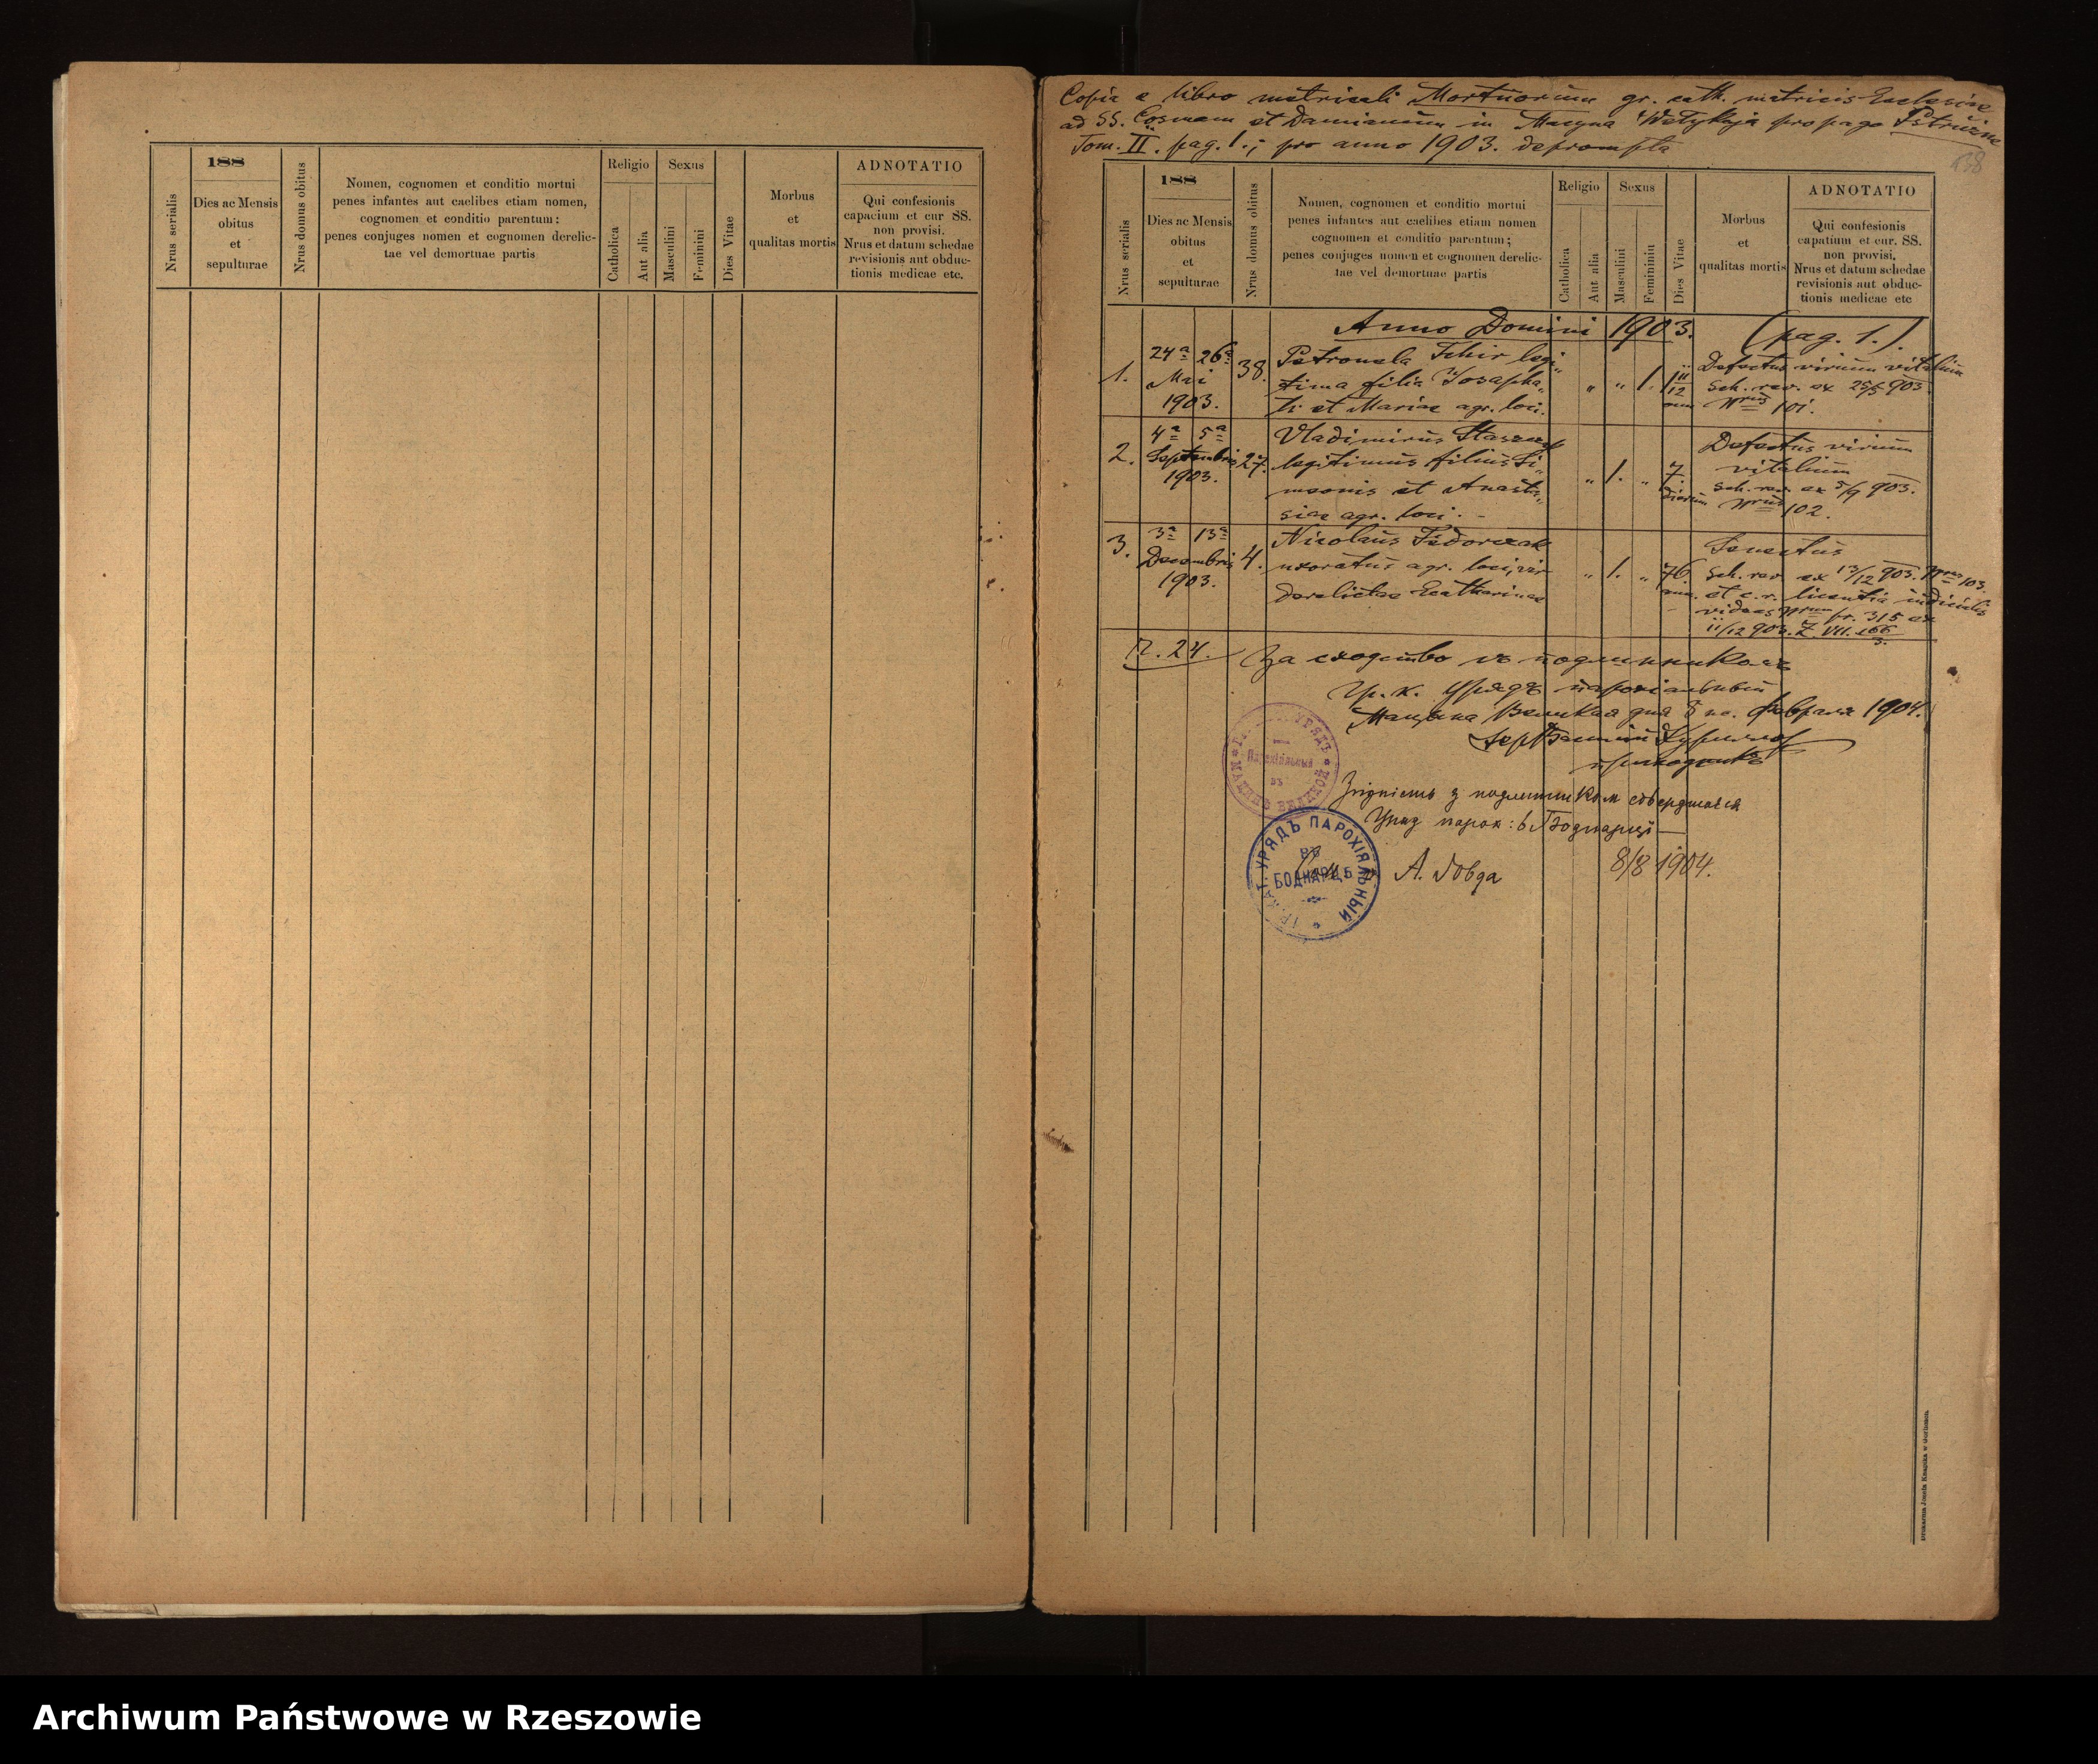 188
Nrus serialis
Dies ac Mensis
obitus
et
sepulturae
Nrus domus obitus
Nomen, cognomen et conditio mortui
penes infantes aut caelibes etiam nomen,
cognomen et conditio parentum:
penes conjuges nomen et cognomen derelic-
tae vel demortuae partis
Religio
Catholica
Aut alia
Sexus
Masculini
Feminini
Dies Vitae
Morbus
et
qualitas mortis
ADNOTATIO
Qui confesionis
capacium et cur SS.
non provisi.
Nrus et datum schedae
revisionis aut obduc-
tionis medicae etc.
Copia e libro metricali Mortuorum gr. cath. matricis Ecclesiae
ad SS. Cosmam et Damianum in Macyna Wełykaja pro pago Pstrużne
Tom. II. pag. 1.; pro anno 1903. deprompta
138
188
Nrus serialis
Dies ac Mensis
obitus
et
sepulturae
Nrus domus obitus
Nomen, cognomen et conditio mortui
penes infantes aut caelibes etiam nomen
cognomen et conditio parentum;
penes conjuges nomen et cognomen derelic-
tae vel demortuae partis
Religio
Catholica
Aut alia
Sexus
Masculini
Femininiu
Dies Vitae
Morbus
et
qualitas mortis
ADNOTATIO
Qui confesionis
capatium et cur. SS.
non provisi,
Nrus et datum schedae
revisionis aut obduc-
tionis medicae etc
Anno Domini 1903. (pag. 1.)
1. 24a 26a
Mai
1903.
38.
Petronela Fehir legi„
tima filia Josapha„
ti et Mariae agr. loci.
„ „ 1. 11/12
Defectus virium vitalium
Sch. rev. ex 25/5 903.
Nrus 101.
2. 4a 5a
Septembris
1903.
27.
Vladimirus
legitimus filius Si„
meonis et Anasta„
siae agr. loci. -
„ 1. „ 7.
dierum
Defectus virium
vitalium
Sch. rev. ex 5/9 903.
Nrus 102.
3. 3a 13a
Decembris
1903.
4.
Nicolaus Fedorczak
uxoratus agr. loci, vir
derelictae Ecatharinae
„ 1. „ 76.
ann.
Senectus
Sch. rev. ex 13/12 903. Nrus 103.
et c. r. licentia iudicialis
videas Nrum pr. 315 ex
11/12 903. Z. VII. 166/3.
П. 24. За сходство въ подлинникомъ
Гр. к. Урядъ парохіальный
Мацѣна Великая дня 8 н. Февраля 1904.
приходникъ
УРЯДЪ
Парохіяльный
въ
МАЦИНѢ ВЕЛИКОЙ
Згідність з подлинником стверджаєся
Уряд парох: в Боднарці
8/8 1904.
ГР. КАТ. УРЯДЪ ПАРОХІЯЛЬНЫЙ
ВЪ
БОДНАРЦѢ
А. Довда
Drukarnia Józefa Knapika w Gorlicach.
Archiwum Państwowe w Rzeszowie